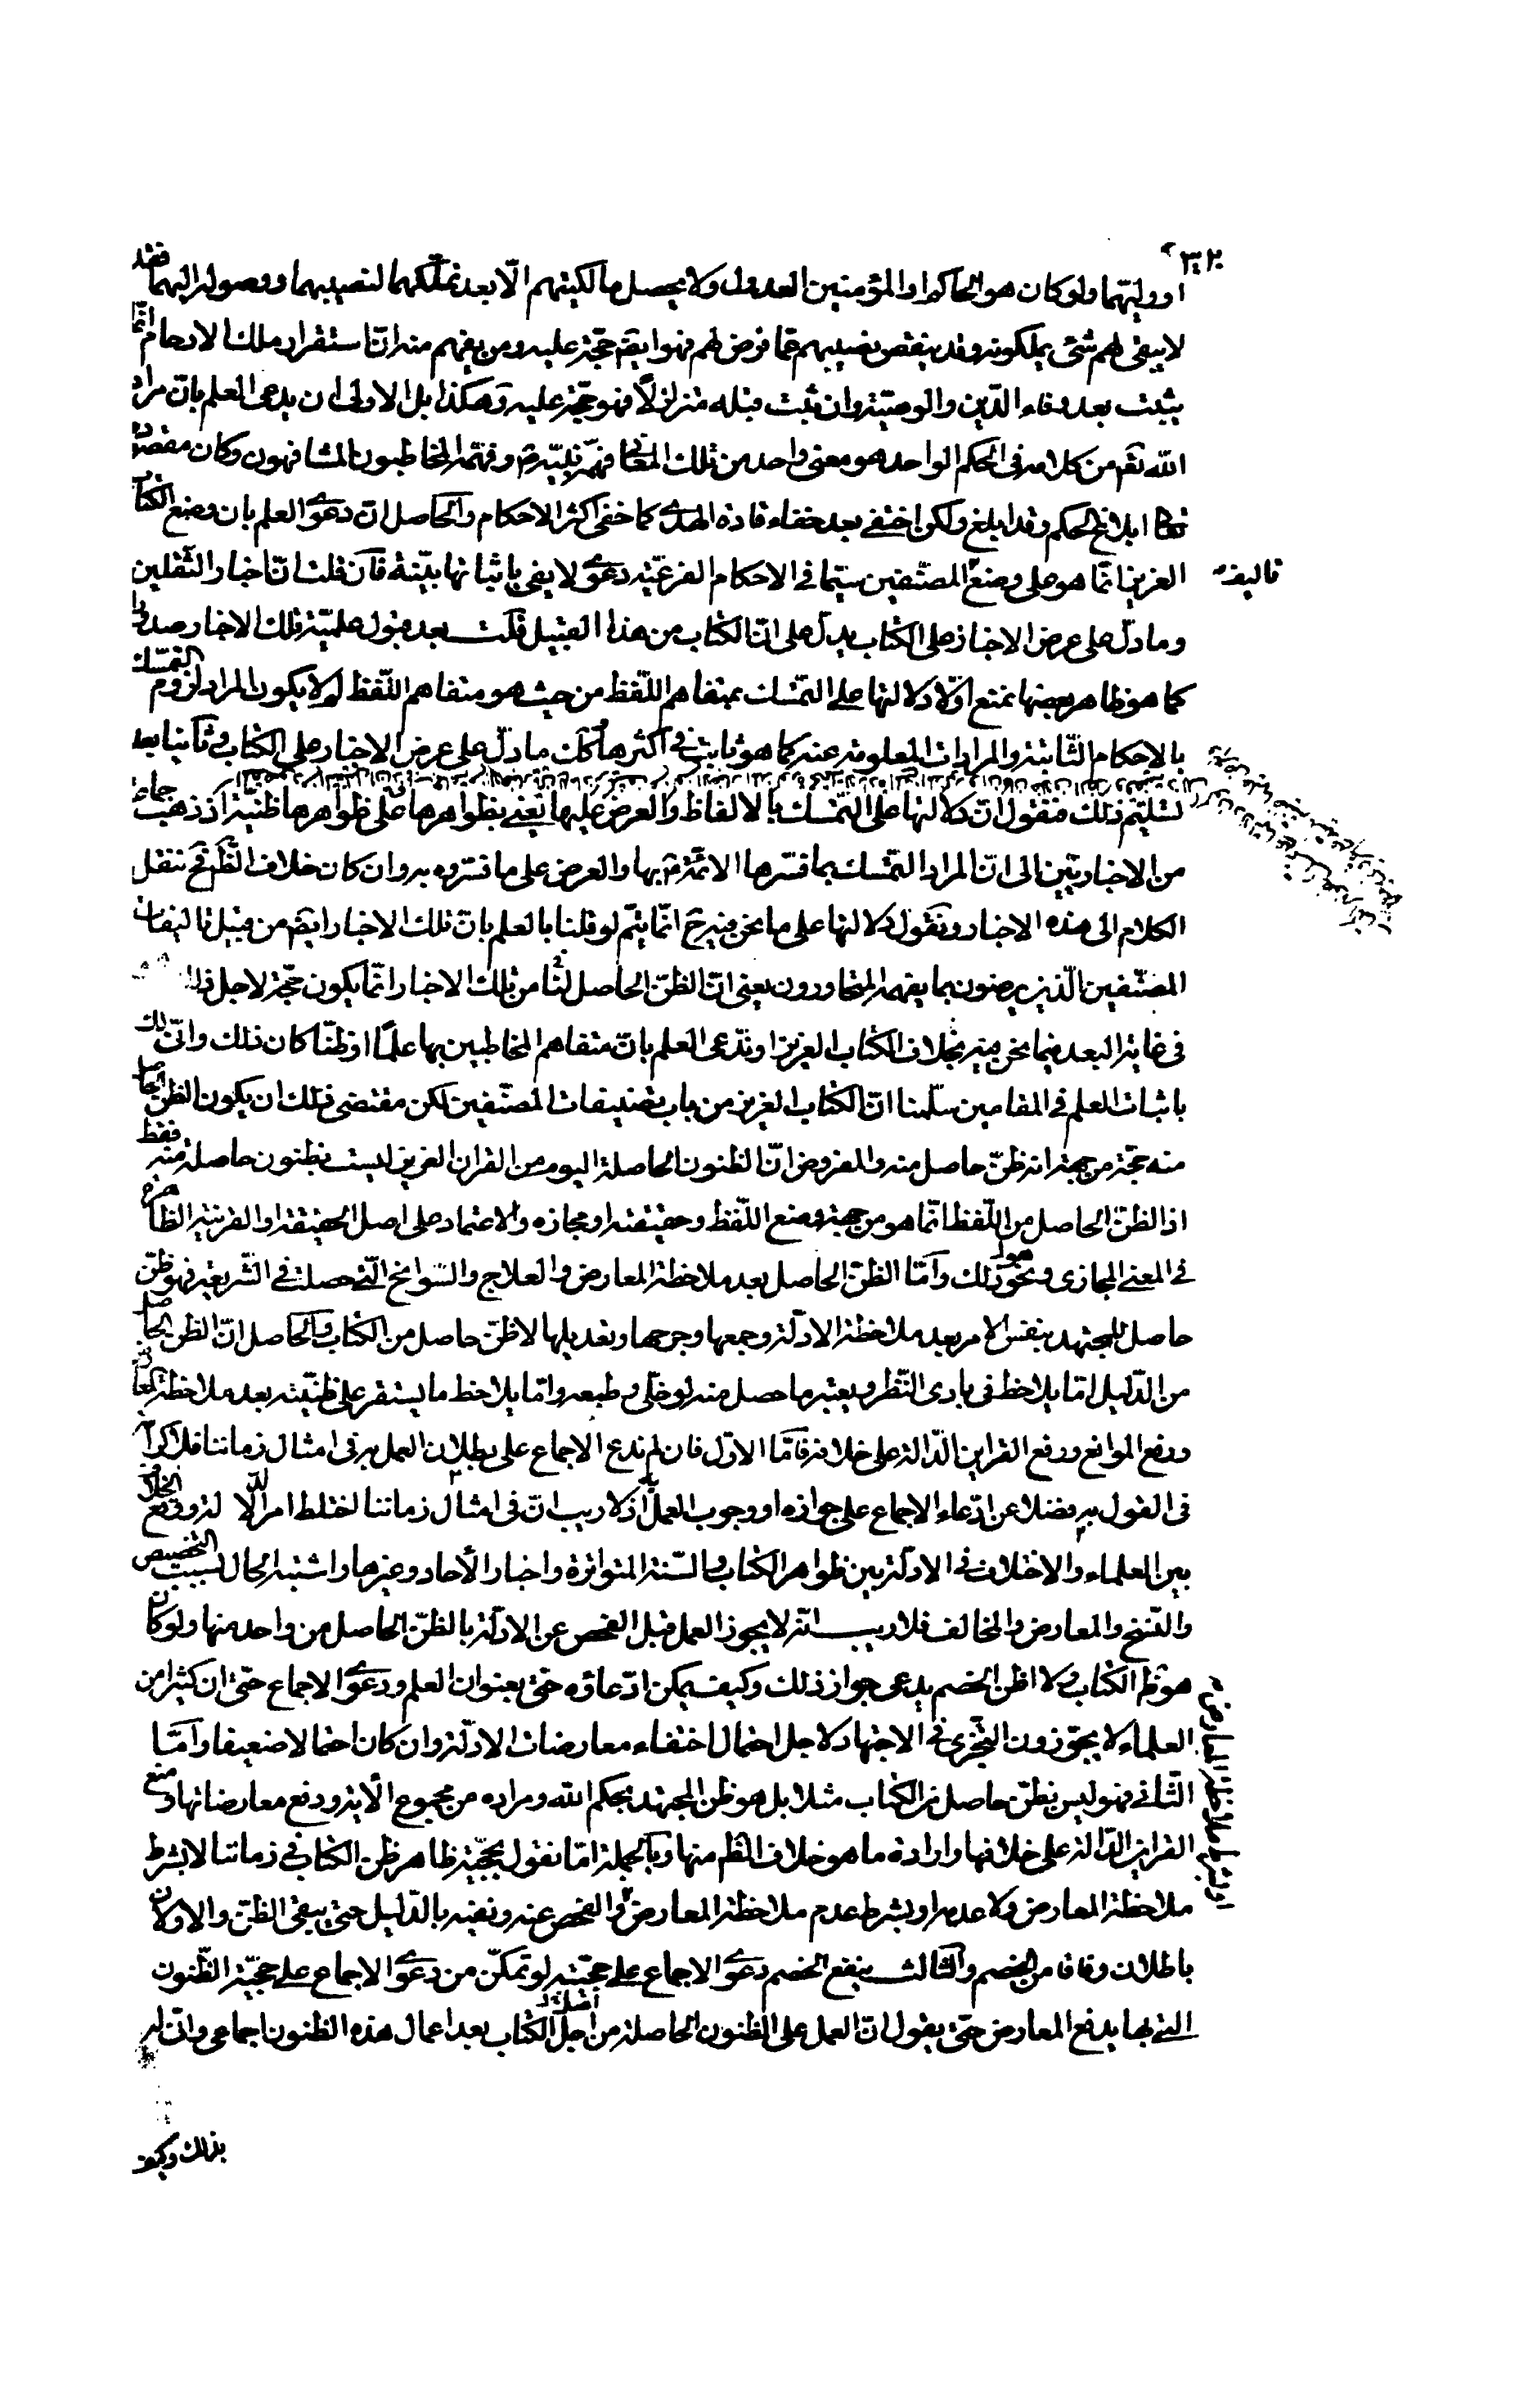 ٣٢٠
او وليّهما ولو كان هو الحاكم او المؤمنين العدول ولا يحصل مالكيتهم الّا بعد تملّكهما لنصيبهما ووصوله اليهما فقد
لا يبقى لهم شئ يملكونه وقد ينقص نصيبهم عمّا فرض لهم فهو ايضم حجّة عليه ومن يفهم منه انّ استقرار ملك الارحام انّما
يثبت بعد وفاء الدّين والوصيّة وان ثبت قبله متزلزلاً فهو حجّة عليه وهكذا بل الاولى ان يدعى العلم بانّ مراد
الله تعم من كلامه فى الحكم الواحد هو معنى واحد من تلك المعانى فهّمه نبيّه ص وفهّمه المخاطبون المشافهون وكان مقصده
ابلاغ الحكم وقد ابلغ ولكن اختفى بعد خفاء قادة الهدى كما خفى اكثر الاحكام والحاصل انّ دعوى العلم بان وضع الكتاب
العزيز انّما هو على وضع المصنّفين سيّما فى الاحكام الفرعيّة دعوى لا يفى باثباتها بيّنة فان قلت انّ اخبار الثّقلين
تاليف
وما دلّ على عرض الاخبار على الكتاب يدلّ على انّ الكتاب من هذا القبيل قلت بعد قبول علميّة تلك الاخبار صدورا
كما هو ظاهر بعضها نمنع اوّلا دلالتها على التمسّك بمتفاهم اللّفظ من حيث هو متفاهم اللّفظ لم لا يكون المراد لزوم التمسّك
بالاحكام الثّابتة والمرادات المعلومة عنه كما هو ثابت فى اكثرها وكك ما دلّ على عرض الاخبار على الكتاب وثانيا بعد
تسليم ذلك فنقول انّ دلالتها على التمسّك بالالفاظ والعرض عليها يعنى بظواهرها على ظواهرها ظنيّة اذ ذهب جماعة
من الاخباريّين الى انّ المراد التمسّك بما فسّرها الائمّة ع بها والعرض على ما فسّروه به وان كان خلاف الظّم فح ننقل
الكلام الى هذه الاخبار ونقول دلالتها على ما نحن فيه ح انّما يتّم لو قلنا بالعلم بانّ تلك الاخبار ايضم من قبيل تاليفات
المصنّفين الّذين يرضون بما يفهمه المتحاورون يعنى انّ الظنّ الحاصل لنا من تلك الاخبار انّما يكون حجّة لاجل
فى غاية البعد فيما نحن فيه بخلاف الكتاب العزيز او ندّعى العلم بانّ متفاهم المخاطبين بها علمًا او ظنّا كان ذلك وانّى لك
باثبات العلم فى المقامين سلّمنا انّ الكتاب العزيز من باب تصنيفات المصنّفين لكن مقتضى ذلك ان يكون الظن الحاصل
منه حجّة من جهة انه ظنّ حاصل منه والمفروض انّ الظنون الحاصلة اليوم من القران العزيز ليست بظنون حاصلة منه فقط
اذ الظنّ الحاصل من اللّفظ انّما هو من جهة وضع اللّفظ وحقيقته او مجازه والاعتماد على اصل الحقيقة او القرينة الظاهرة
فى المعنى المجازى ونحو ذلك وامّا الظنّ الحاصل بعد ملاحظة المعارض والعلاج والسّوانح الّتى حصلت فى الشّريعة فهو ظنّ
حاصل للمجتهد بنفس الامر بعد ملاحظة الادلّة وجمعها وجرحها وتعديلها لا ظنّ حاصل من الكتاب والحاصل انّ الظن الحاصل
من الدّليل امّا يلاحظ فى بادى النّظر ويعتبر ما حصل منه لو خلّى وطبعه وامّا يلاحظ ما يستقر على ظنيّته بعد ملاحظة المعارض
ورفع الموانع ودفع القراين الدّالة على خلافه فامّا الاوّل فان لم ندع الاجماع على بطلان العمل به فى امثال زماننا فلا اقل
فى القول به فضلا عن ادّعاء الاجماع على جوازه او وجوب العمل به اذ لا ريب انّ فى امثال زماننا اختلط امر الادلّة ووقع الخلاف
بين العلماء والاختلاف فى الادلّة بين ظواهر الكتاب والسّنة المتواترة واخبار الآحاد وغيرها واشتبه الحال بسبب التخصيص
والنّسخ والمعارض والمخالف فلا ريب انّه لا يجوز العمل قبل الفحص عن الادلّة بالظنّ الحاصل من واحد منها ولو كان
هو ظم الكتاب ولا اظن الخصم يدعى جواز ذلك وكيف يمكن ادّعاؤه حتى بعنوان العلم ودعوى الاجماع حتى ان كثيرا من
العلماء لا يجوّزون التجزّى فى الاجتهاد لاجل احتمال اختفاء معارضات الادلّة وان كان احتمالا ضعيفا وامّا
الثّانى فهو ليس بظنّ حاصل من الكتاب مثلا بل هو ظن المجتهد بحكم الله ومراده من مجموع الآية ودفع معارضاتها ومنع
القراين الدّالة على خلافها وارادة ما هو خلاف الظّم منها وبالجملة امّا نقول بحجيّة ظاهر ظن الكتاب فى زماننا لا بشرط
ملاحظة المعارض ولا عدمه او بشرط عدم ملاحظة المعارض او الفحص عنه ونفيه بالدّليل حتى يبقى الظنّ والاولان
او بشرط ملاحظة المعارض
باطلان وفاقا من الخصم والثّالث ينفع الخصم دعوى الاجماع على حجيّته لو تمكّن من دعوى الاجماع على حجيّة الظّنون
التى بها يدفع المعارض حتى يقول انّ العمل على الظنون الحاصلة من اجل الكتاب بعد اعمال هذه الظنون اجماعى وانّى له
بذلك وكيف